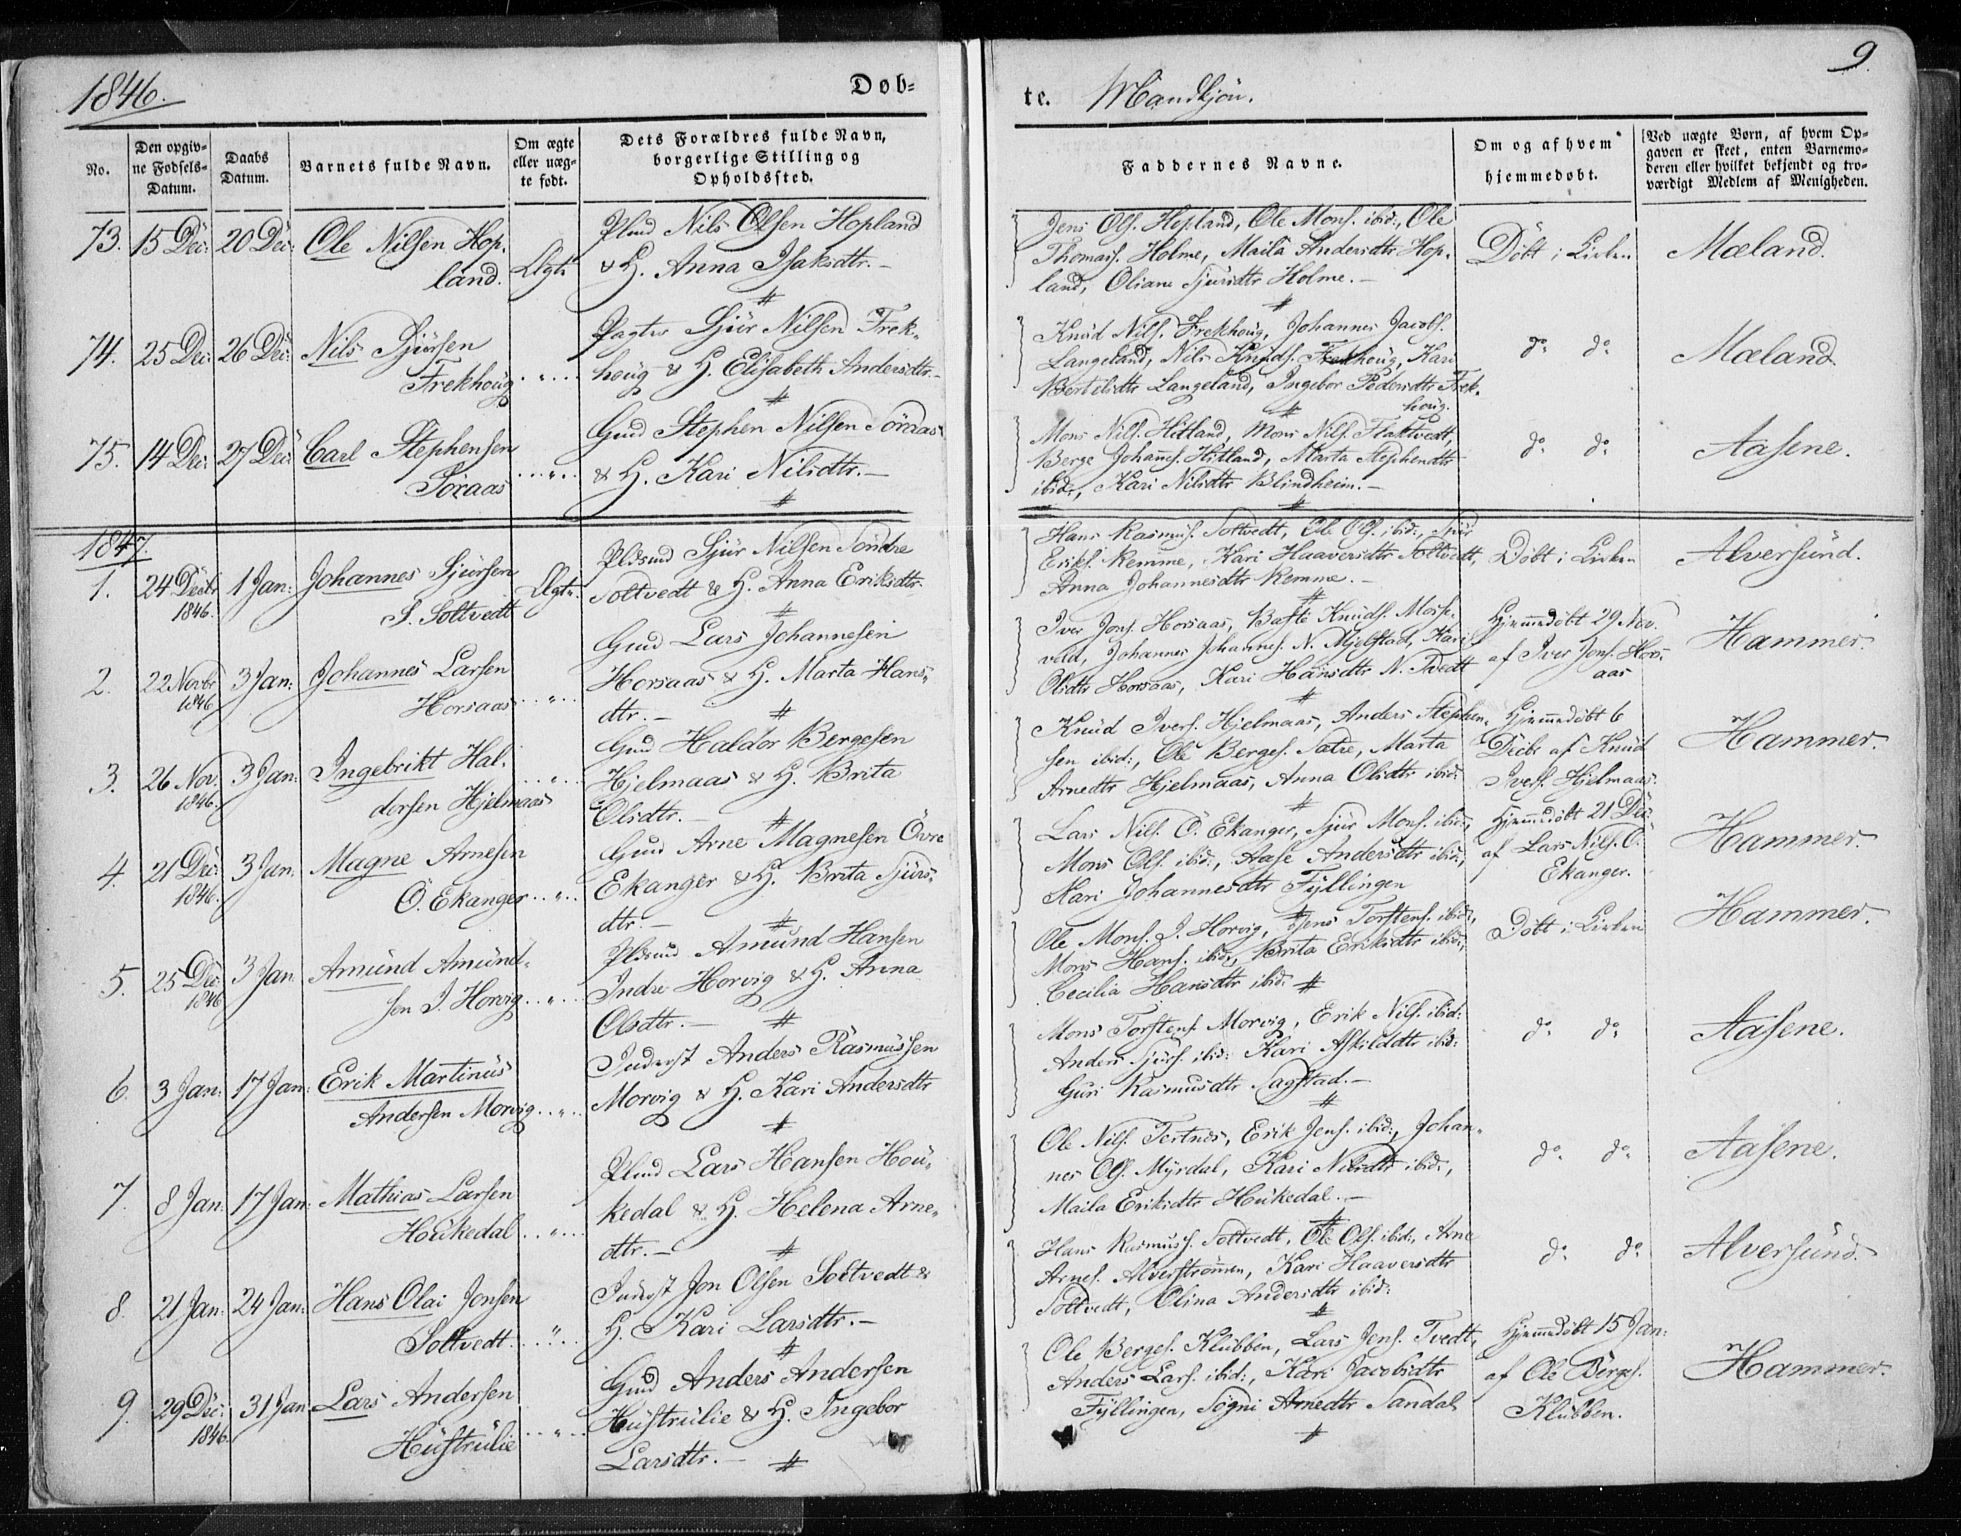 1846.
Døb=
te. Mandkjøn.
9.
No.
Den opgiv=
ne Fødsels=
Datum.
Daabs
Datum.
Barnets fulde Navn.
Om ægte
eller uæg=
te født.
Dets Forældres fulde Navn,
borgerlige Stilling og
Opholdssted.
Faddernes Navne.
Om og af hvem
hjemmedøbt.
Ved uægte Børn, af hvem Op=
gaven er skeet, enten Barnemo=
deren eller hvilket bekjendt og tro=
værdigt Medlem af Menigheden.
73. 15 Dec: 20 Dec: Ole Nilsen Hop-
land. Ægte
Plmd Nils Olsen Hopland
& H. Anna Isaksdtr. —
Jens Ols. Hopland, Ole Mons. ibid:, Ole
Thomass. Holme, Maila Andersdtr Hop-
land, Oliane Sjursdtr Holme. —
Døbt i Kirken
Mæland.
74. 25 Dec: 26 Dec: Nils Sjursen
Frekhoug
Pagter Sjur Nilsen Frek-
houg & H. Elisabeth Andersdtr. —
Knud Nils. Frekhoug, Johannes Jacobs.
Langeland, Nils Knuds. Frekhoug, Kari
Bertelsdtr Langeland, Ingebor Pedersdtr Frek-
houg.
do do
Mæland.
75. 14 Dec: 27 Dec: Carl Stephensen
Söraas
Gmd Stephen Nilsen Söraas
& H. Kari Nilsdtr. —
Mons Nils. Hitland, Mons Nils. Flaktvedt,
Berge Johans. Hitland, Marta Stephensdtr
ibid:, Kari Nilsdtr Blindheim. —
do do
Aasene.
1847.
1. 24 Decbr 1846. 1 Jan: Johannes Sjursen
S. Soltvedt Ægte
Pldsmd Sjur Nilsen Söndre
Soltvedt & H. Anna Eriksdtr.
Hans Rasmus. Soltvedt, Ole Ols. ibid:, Sjur
Eriks. Remme, Kari Haaversdtr Soltvedt,
Anna Johannesdtr Remme. —
Døbt i Kirken
Alversund.
2. 22 Novbr 1846 3 Jan: Johannes Larsen
Horsaas
Gmd Lars Johannesen
Horsaas & H. Marta Hans-
dtr. —
Iver Jons. Horsaas, Baste Knuds. Mose-
vold, Johannes Johanness. N. Mjelstad, Kari
Olsdtr Horsaas, Kari Hansdtr N. Tvedt
Hjemmedøbt 29 Nov.
af Iver Jons. Hors-
aas
Hammer.
3. 26 Nov. 1846. 3 Jan: Ingebrikt Hal-
dorsen Hjelmaas
Gmd Haldor Bergesen
Hjelmaas & H. Brita
Olsdtr. —
Knud Ivers. Hjelmaas, Anders Stephen-
sen ibid:, Ole Berges. Sætre, Marta
Arnedtr Hjelmaas, Anna Olsdtr ibid:
Hjemmedøbt 6
Decbr af Knud
Ivers. Hjelmaas.
Hammer.
4. 21 Dec: 1846. 3 Jan: Magne Arnesen
Ö. Ekanger
Gmd Arne Magnesen Övre
Ekanger & H. Brita Sjurs-
dtr. —
Lars Nils. Ö. Ekanger, Sjur Mons. ibid:,
Mons Ols. ibid:, Aase Andersdtr ibid:,
Kari Johannesdtr Fyllingen
Hjemmedøbt 21 Dec:
af Lars Nils. Ö.
Ekanger.
Hammer.
5. 25 Dec: 1846 3 Jan Amund Amund-
sen I. Horvig
Pldsmd Amund Hansen
Indre Horvig & H. Anna
Olsdtr. —
Ole Mons. I. Horvig, Jens Torstens. ibid:,
Mons Hans. ibid:, Brita Eriksdtr ibid:,
Cecilia Hansdtr ibid:
Døbt i Kirken
Hammer.
6. 3 Jan: 17 Jan: Erik Martinus
Andersen Morvig
Inderst Anders Rasmussen
Morvig & H. Kari Andersdtr
Mons Torstens. Morvig, Erik Nils. ibid:
Anders Sjurs. ibid: Kari Askildsdtr ibid:
Guri Rasmusdtr Sagstad. —
do do
Aasene.
7. 8 Jan: 17 Jan: Mathias Larsen
Houkedal
Plmd Lars Hansen Hou-
kedal & H. Helena Arne-
dtr. —
Ole Nils. Tertnes, Erik Jens. ibid:, Johan-
nes Ols. Myrdal, Kari Nilsdtr ibid:,
Maila Eriksdtr Houkedal. —
do do
Aasene.
8. 21 Jan: 24 Jan: Hans Olai Jonsen
Soltvedt
Inderst Jon Olsen Soltvedt &
H. Kari Larsdtr. —
Hans Rasmuss. Soltvedt, Ole Ols. ibid:, Arne
Arnes. Alverströmen, Kari Haaversdtr
Soltvedt, Olina Andersdtr ibid:
do do
Alversund.
9. 29 Dec: 1846. 31 Jan Lars Andersen
Hustrulie
Gmd Anders Andersen
Hustrulie & H. Ingebor
Larsdtr. —
Ole Berges. Klubben, Lars Jens. Tvedt,
Anders Lars. ibid:, Kari Jacobsdtr
Fyllingen, Sögni Arnedtr Sandal
Hjemmedøbt 15 Jan:
af Ole Berges.
Klubben.
Hammer.